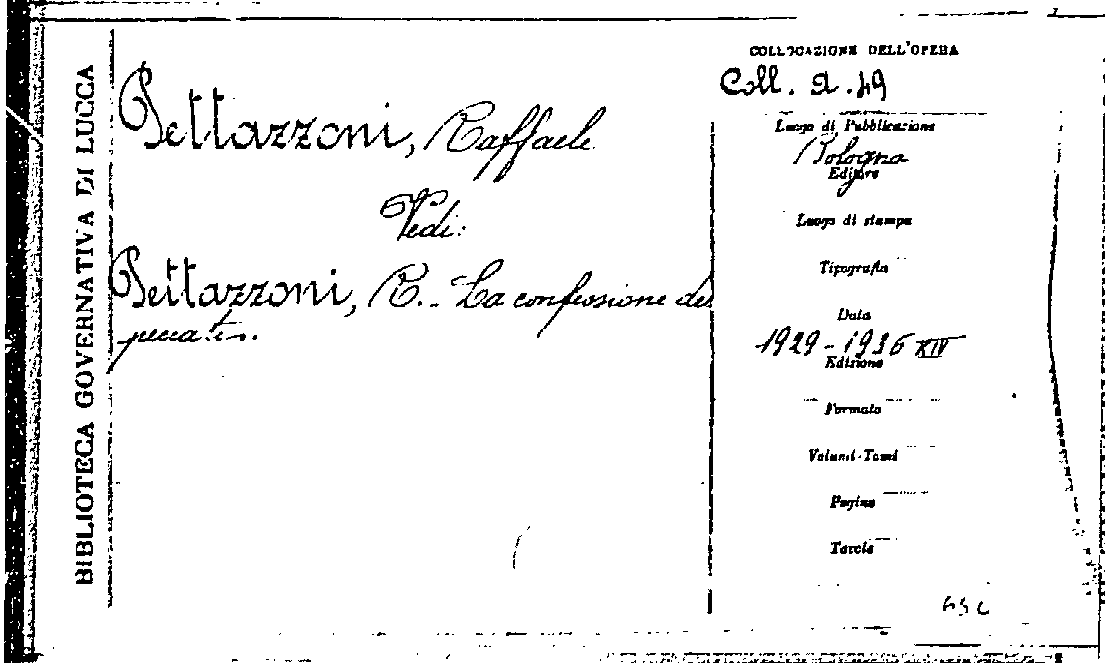 BIBLIOTECA GOVERNATIVA DI LUCCA
Pettazzoni, Raffaele
Vedi:
Pettazzoni, R. - La confessione dei
peccati.
COLLOCAZIONE DELL'OPERA
Coll. A. 49
Luogo di Pubblicazione
Bologna
Editore
Luogo di stampa
Tipografia
Data
1929-1936 XIV
Edizione
Formato
Volumi-Tomi
Pagine
Tavole